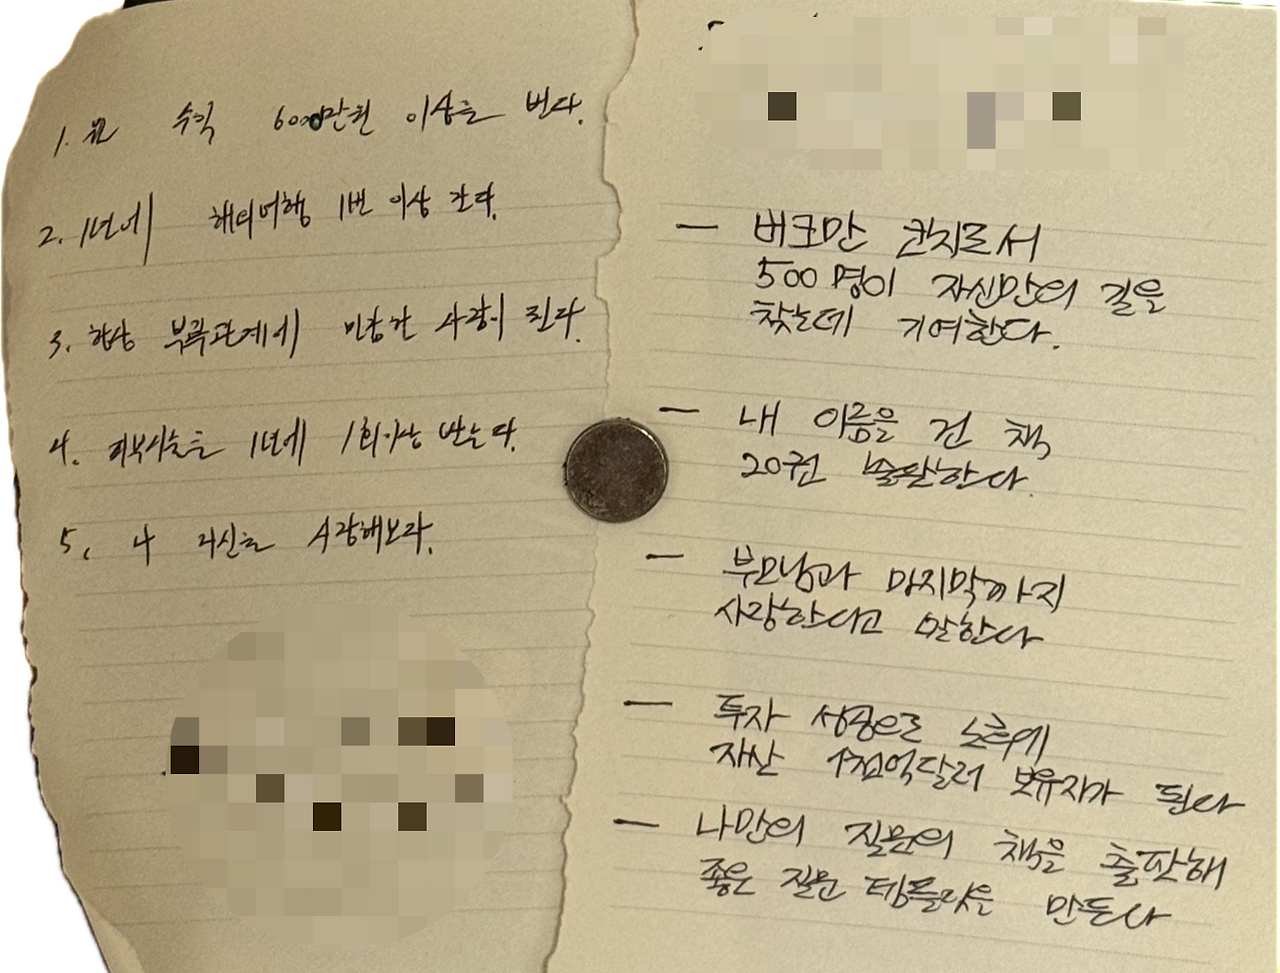 1. 월 수익 6000만원 이상을 번다.
2. 1년에 해외여행 1번 이상 간다.
3. 항상 부부관계에 만족한 사람이 된다.
4. 피부시술을 1년에 1회이상 받는다.
5. 나 자신을 사랑해보자.
— 버크만 코치로서
500명이 자신만의 길을
찾는데 기여한다.
— 내 이름을 건 책
20권 발한다.
— 부모님과 마지막까지
사랑한다고 말한다
— 투자 성공으로 노후에
자산 1천억달러 보유자가 된다
— 나만의 질문의 책을 출판해
좋은 질문 템플릿을 만든다